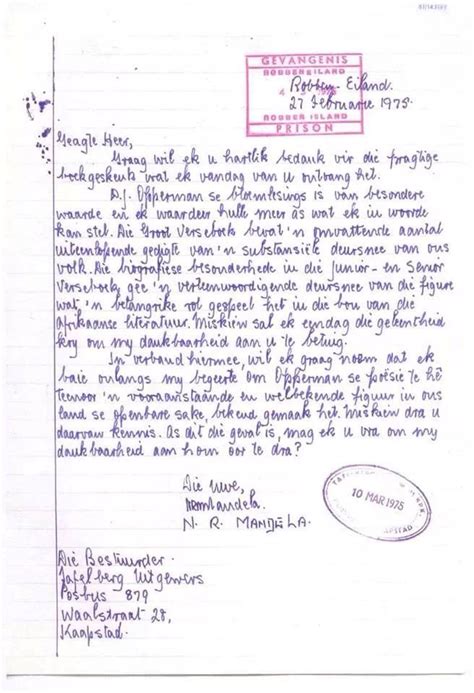 GEVANGENIS
ROBBENEILAND
ROBBEN ISLAND
PRISON
Robben-Eiland.
27 Februarie 1975.
Geagte Heer,
Graag wil ek u hartlik bedank vir die pragtige
boekgeskenk wat ek vandag van u ontvang het.
D.J. Opperman se bloemlesings is van besondere
waarde en ek waardeer hulle meer as wat ek in woorde
kan stel. Die Groot Verseboek bevat 'n omvattende aantal
uiteenlopende gedigte van 'n substansiële deursnee van ons
volk. Die biografiese besonderhede in die Junior- en Senior
Verseboek gee 'n verteenwoordigende deursnee van die figure
wat 'n belangrike rol gespeel het in die bou van die
Afrikaanse literatuur. Miskien sal ek eendag die geleentheid
kry om my dankbaarheid aan u te betuig.
In verband hiermee, wil ek graag noem dat ek
baie onlangs my begeerte om Opperman se poësie te hê
teenoor 'n vooraanstaande en welbekende figuur in ons
land se openbare sake, bekend gemaak het. Miskien dra u
daarvan kennis. As dit die geval is, mag ek u vra om my
dankbaarheid aan hom oor te dra?
Die Uwe,
NRMandela
N. R. MANDELA.
10 MAR 1975
Die Bestuurder
Tafelberg Uitgewers
Posbus 879
Waalstraat 28,
Kaapstad.